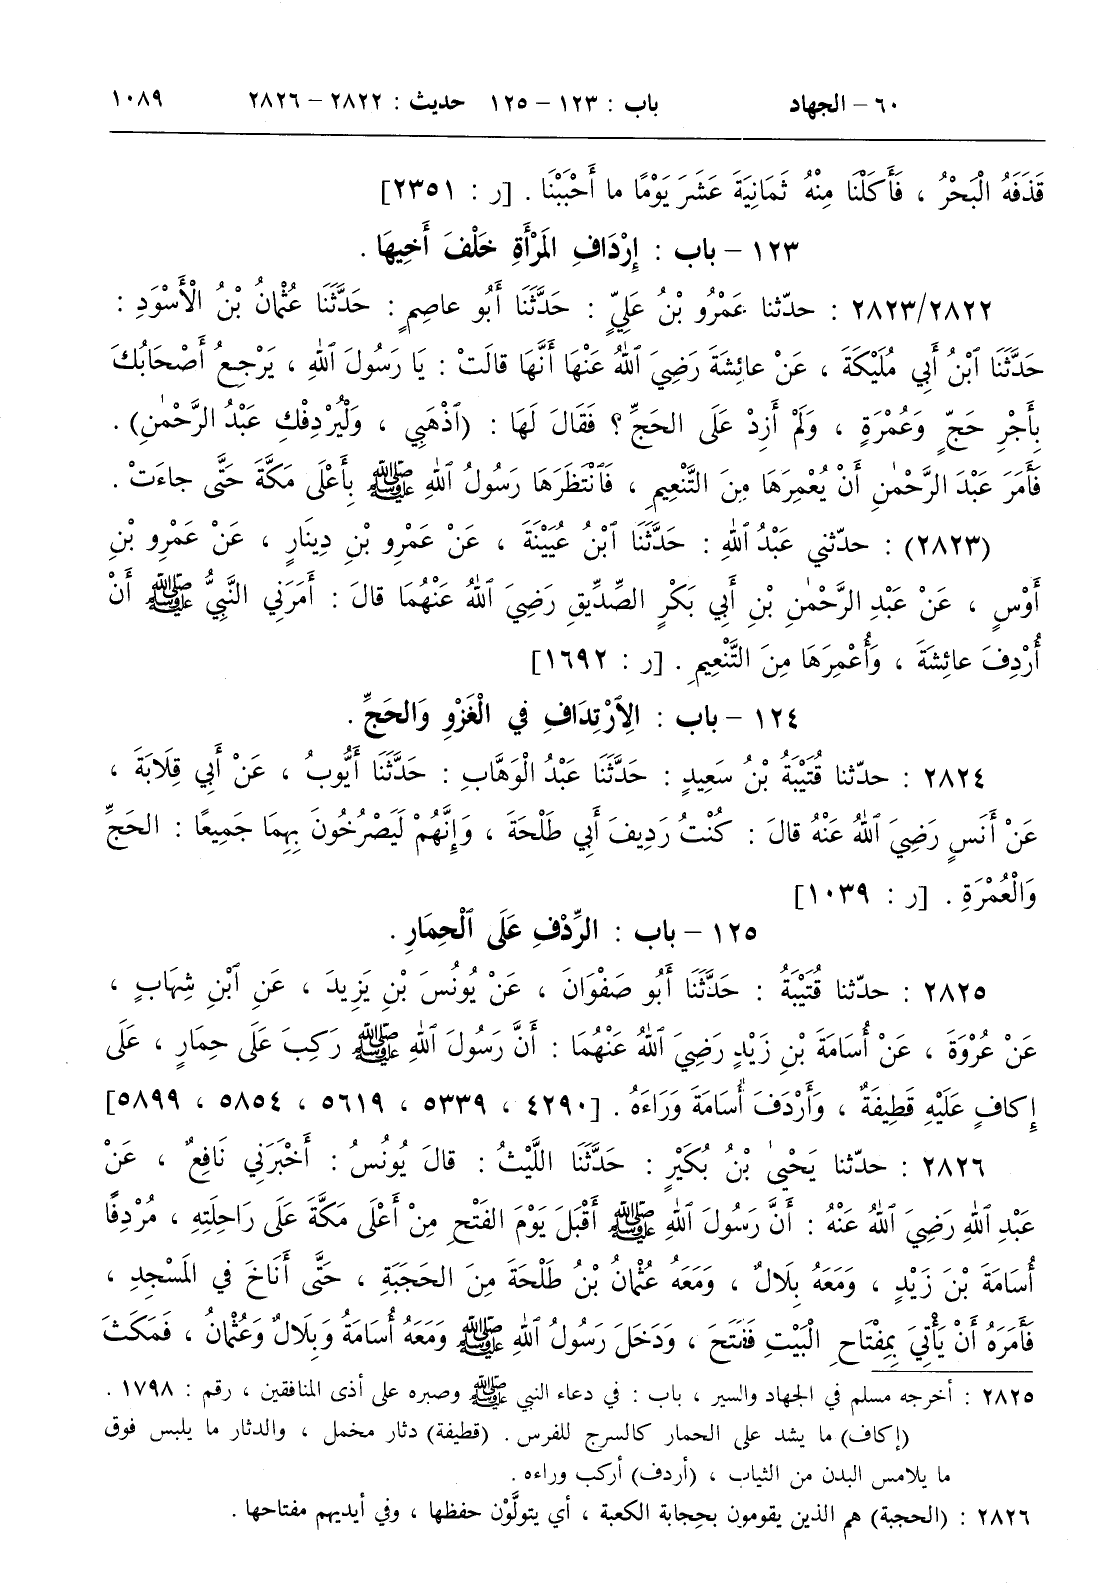 ٦٠ – الجهاد باب : ١٢٣ – ١٢٥ حديث : ٢٨٢٢ – ٢٨٢٦ ١٠٨٩
قَذَفَهُ الْبَحْرُ ، فَأَكَلْنَا مِنْهُ ثَمَانِيَةَ عَشَرَ يَوْمًا ما أَحْبَبْنَا . [ر : ٢٣٥١]
١٢٣ – باب : إِرْدَافِ المَرْأَةِ خَلْفَ أَخِيهَا .
٢٨٢٣/٢٨٢٢ : حدّثنا عَمْرُو بْنُ عَلِيٍّ : حَدَّثَنَا أَبُو عاصِمٍ : حَدَّثَنَا عُثْمَانُ بْنُ الْأَسْوَدِ :
حَدَّثَنَا ٱبْنُ أَبِي مُلَيْكَةَ ، عَنْ عائِشَةَ رَضِيَ ٱللهُ عَنْهَا أَنَّهَا قالَتْ : يَا رَسُولَ ٱللهِ ، يَرْجِعُ أَصْحَابُكَ
بِأَجْرِ حَجٍّ وَعُمْرَةٍ ، وَلَمْ أَزِدْ عَلَى الحَجِّ ؟ فَقَالَ لَهَا : (ٱذْهَبِي ، وَلْيُرْدِفْكِ عَبْدُ الرَّحْمٰنِ) .
فَأَمَرَ عَبْدَ الرَّحْمٰنِ أَنْ يُعْمِرَهَا مِنَ التَّنْعِيمِ ، فَٱنْتَظَرَهَا رَسُولُ ٱللهِ ﷺ بِأَعْلَى مَكَّةَ حَتَّى جاءَتْ .
(٢٨٢٣) : حدّثني عَبْدُ ٱللهِ : حَدَّثَنَا ٱبْنُ عُيَيْنَةَ ، عَنْ عَمْرِو بْنِ دِينَارٍ ، عَنْ عَمْرِو بْنِ
أَوْسٍ ، عَنْ عَبْدِ الرَّحْمٰنِ بْنِ أَبِي بَكْرٍ الصِّدِّيقِ رَضِيَ ٱللهُ عَنْهُمَا قالَ : أَمَرَنِي النَّبِيُّ ﷺ أَنْ
أُرْدِفَ عائِشَةَ ، وَأُعْمِرَهَا مِنَ التَّنْعِيمِ . [ر : ١٦٩٢]
١٢٤ – باب : الِٱرْتِدَافِ في الْغَزْوِ وَالحَجِّ .
٢٨٢٤ : حدّثنا قُتَيْبَةُ بْنُ سَعِيدٍ : حَدَّثَنَا عَبْدُ الْوَهَّابِ : حَدَّثَنَا أَيُّوبُ ، عَنْ أَبِي قِلَابَةَ ،
عَنْ أَنَسٍ رَضِيَ ٱللهُ عَنْهُ قالَ : كُنْتُ رَدِيفَ أَبِي طَلْحَةَ ، وَإِنَّهُمْ لَيَصْرُخُونَ بِهِمَا جَمِيعًا : الحَجِّ
وَالْعُمْرَةِ . [ر : ١٠٣٩]
١٢٥ – باب : الرِّدْفِ عَلَى الْحِمَارِ .
٢٨٢٥ : حدّثنا قُتَيْبَةُ : حَدَّثَنَا أَبُو صَفْوَانَ ، عَنْ يُونُسَ بْنِ يَزِيدَ ، عَنِ ٱبْنِ شِهَابٍ ،
عَنْ عُرْوَةَ ، عَنْ أُسَامَةَ بْنِ زَيْدٍ رَضِيَ ٱللهُ عَنْهُمَا : أَنَّ رَسُولَ ٱللهِ ﷺ رَكِبَ عَلَى حِمَارٍ ، عَلَى
إِكافٍ عَلَيْهِ قَطِيفَةٌ ، وَأَرْدَفَ أُسَامَةَ وَرَاءَهُ . [٤٢٩٠ ، ٥٣٣٩ ، ٥٦١٩ ، ٥٨٥٤ ، ٥٨٩٩]
٢٨٢٦ : حدّثنا يَحْيىٰ بْنُ بُكَيْرٍ : حَدَّثَنَا اللَّيْثُ : قالَ يُونُسُ : أَخْبَرَنِي نَافِعٌ ، عَنْ
عَبْدِ ٱللهِ رَضِيَ ٱللهُ عَنْهُ : أَنَّ رَسُولَ ٱللهِ ﷺ أَقْبَلَ يَوْمَ الْفَتْحِ مِنْ أَعْلَى مَكَّةَ عَلَى رَاحِلَتِهِ ، مُرْدِفًا
أُسَامَةَ بْنَ زَيْدٍ ، وَمَعَهُ بِلَالٌ ، وَمَعَهُ عُثْمَانُ بْنُ طَلْحَةَ مِنَ الحَجَبَةِ ، حَتَّى أَنَاخَ في المَسْجِدِ ،
فَأَمَرَهُ أَنْ يَأْتِيَ بِمِفْتَاحِ الْبَيْتِ فَفَتَحَ ، وَدَخَلَ رَسُولُ ٱللهِ ﷺ وَمَعَهُ أُسَامَةُ وَبِلَالٌ وَعُثْمَانُ ، فَمَكَثَ
٢٨٢٥ : أخرجه مسلم في الجهاد والسير ، باب : في دعاء النبي ﷺ وصبره على أذى المنافقين ، رقم : ١٧٩٨ .
(إكاف) ما يشد على الحمار كالسرج للفرس . (قطيفة) دثار مخمل ، والدثار ما يلبس فوق
ما يلامس البدن من الثياب ، (أردف) أركب وراءه .
٢٨٢٦ : (الحجبة) هم الذين يقومون بحِجابة الكعبة ، أي يتولَّوْن حفظها ، وفي أيديهم مفتاحها .